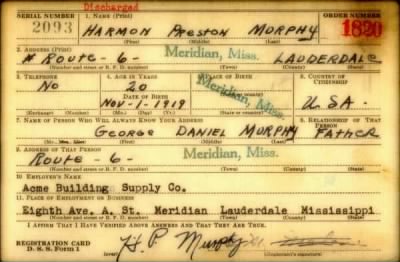 Discharged
SERIAL NUMBER 1. NAME (Print) ORDER NUMBER
2093 HARMON Preston MURPHY 1820
(First) (Middle) (Last)
2. ADDRESS (Print)
# Route - 6 - Meridian, Miss. LAUDERDALE
(Number and street or R. F. D. number) (Town) (County) (State)
3. TELEPHONE 4. AGE IN YEARS 5. PLACE OF BIRTH 6. COUNTRY OF CITIZENSHIP
No 20 Meridian, Miss.
DATE OF BIRTH
Nov-1-1919 U.S.A.
7. NAME OF PERSON WHO WILL ALWAYS KNOW YOUR ADDRESS 8. RELATIONSHIP OF THAT PERSON
GEORGE DANIEL MURPHY FATHER
(First) (Middle) (Last)
9. ADDRESS OF THAT PERSON
Route - 6 - Meridian, Miss.
(Number and street or R. F. D. number) (Town) (County) (State)
10. EMPLOYER'S NAME
Acme Building Supply Co.
11. PLACE OF EMPLOYMENT OR BUSINESS
Eighth Ave. A. St. Meridian Lauderdale Mississippi
(Number and street or R. F. D. number) (Town) (County) (State)
I AFFIRM THAT I HAVE VERIFIED ABOVE ANSWERS AND THAT THEY ARE TRUE.
REGISTRATION CARD
D. S. S. FORM 1 H P Murphy
(over) (Registrant's signature)